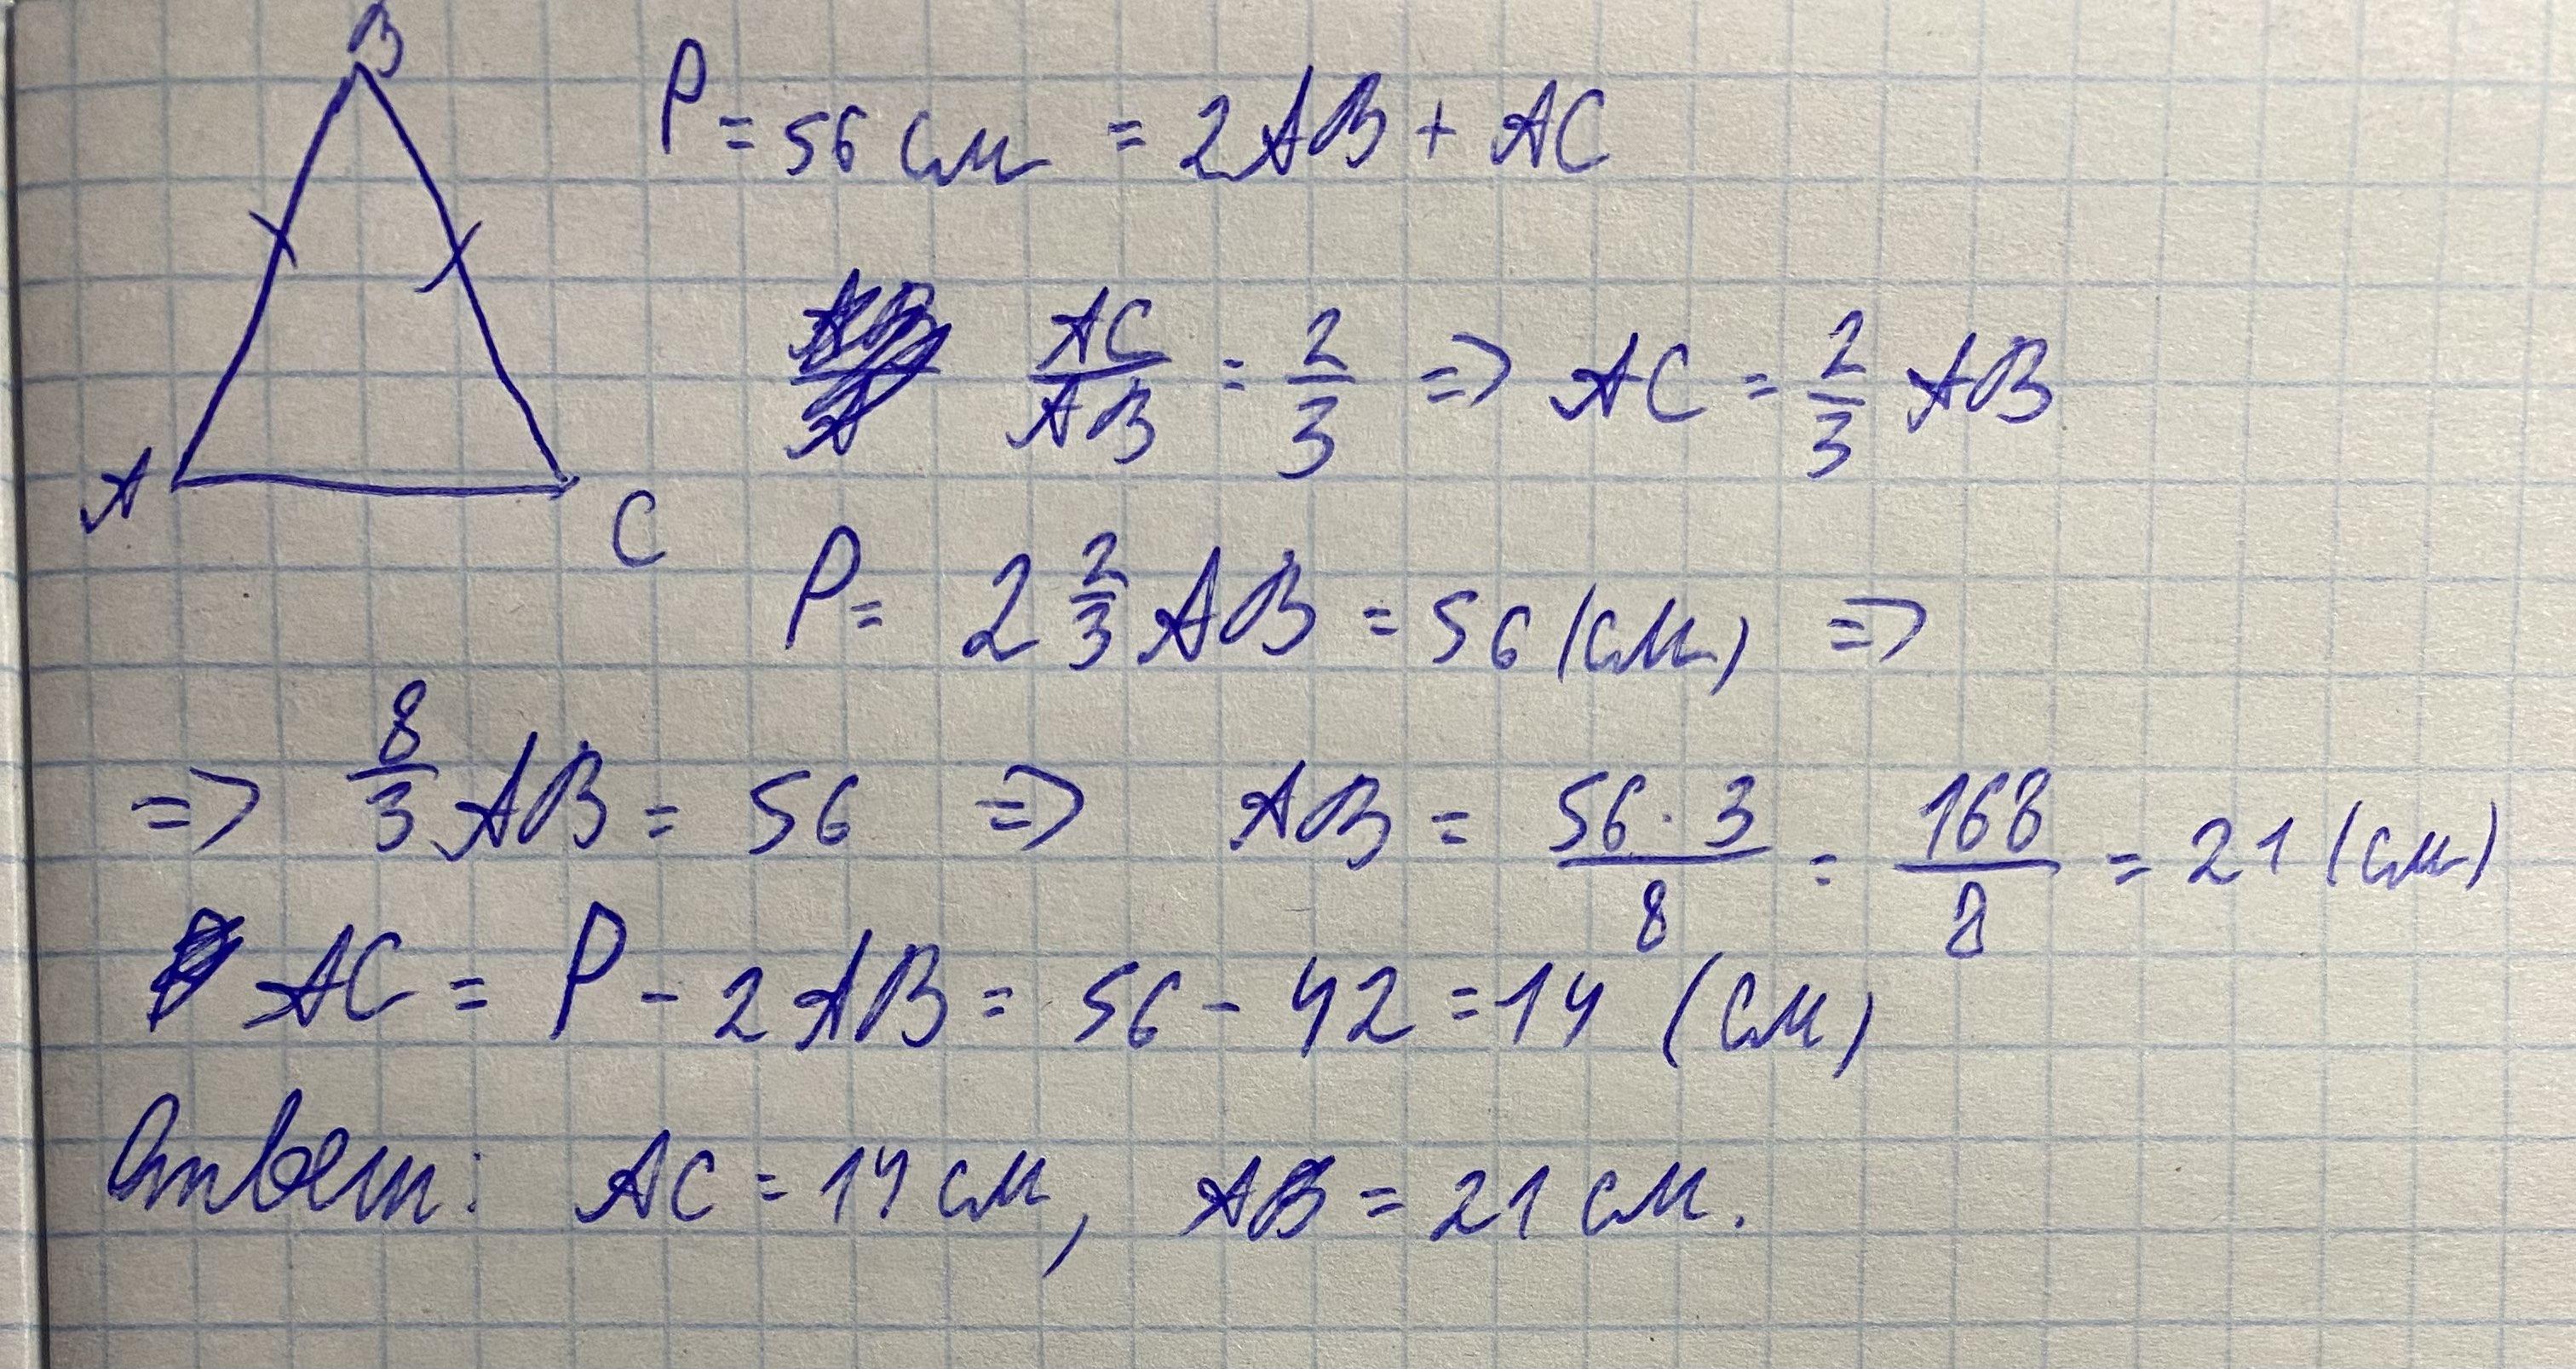 B
P = 56 см = 2AB + AC
AC/AB = 2/3 => AC = 2/3 AB
A
C
P = 2 2/3 AB = 56 (см) =>
=> 8/3 AB = 56 => AB = 56 · 3/8 = 168/8 = 21 (см)
AC = P - 2AB = 56 - 42 = 14 (см)
Ответ: AC = 14 см, AB = 21 см.